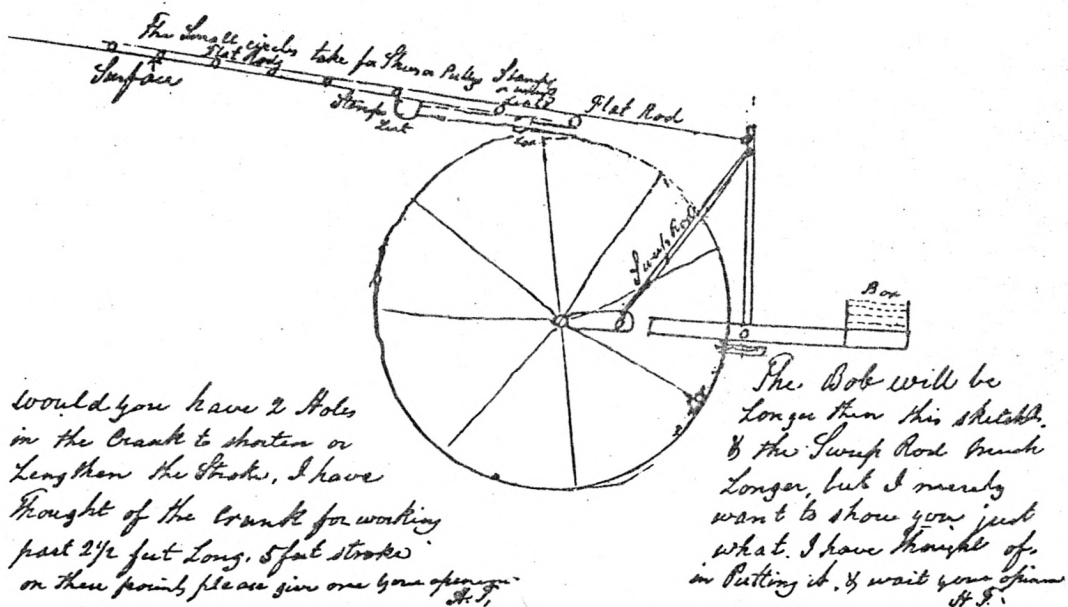 The Small circles take for Sheaves or Pulleys
Flat Rods
Surface
Flat Rod
Sweep Rod
Box
would you have 2 Holes
in the Crank to shorten or
Lengthen the Stroke, I have
Thought of the Crank for working
part 2 1/2 feet Long, 5 feet stroke
on these points please give me your openion
The Bob will be
Longer then this sketch
& the Sweep Rod much
Longer, but I merely
want to show you just
what I have thought of
in Putting it, & wait your opinion